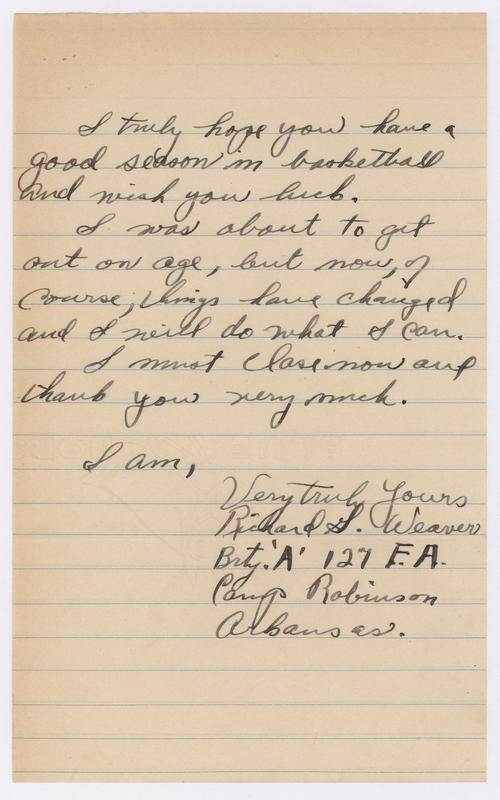 I truly hope you have a
good season in basketball
and wish you luck.
I was about to get
out on age, but now, of
course, things have changed
and I will do what I can.
I must close now and
thank you very much.
I am,
Very truly Yours
Richard S. Weaver
Brty. 'A' 127 F.A.
Camp Robinson
Arkansas.